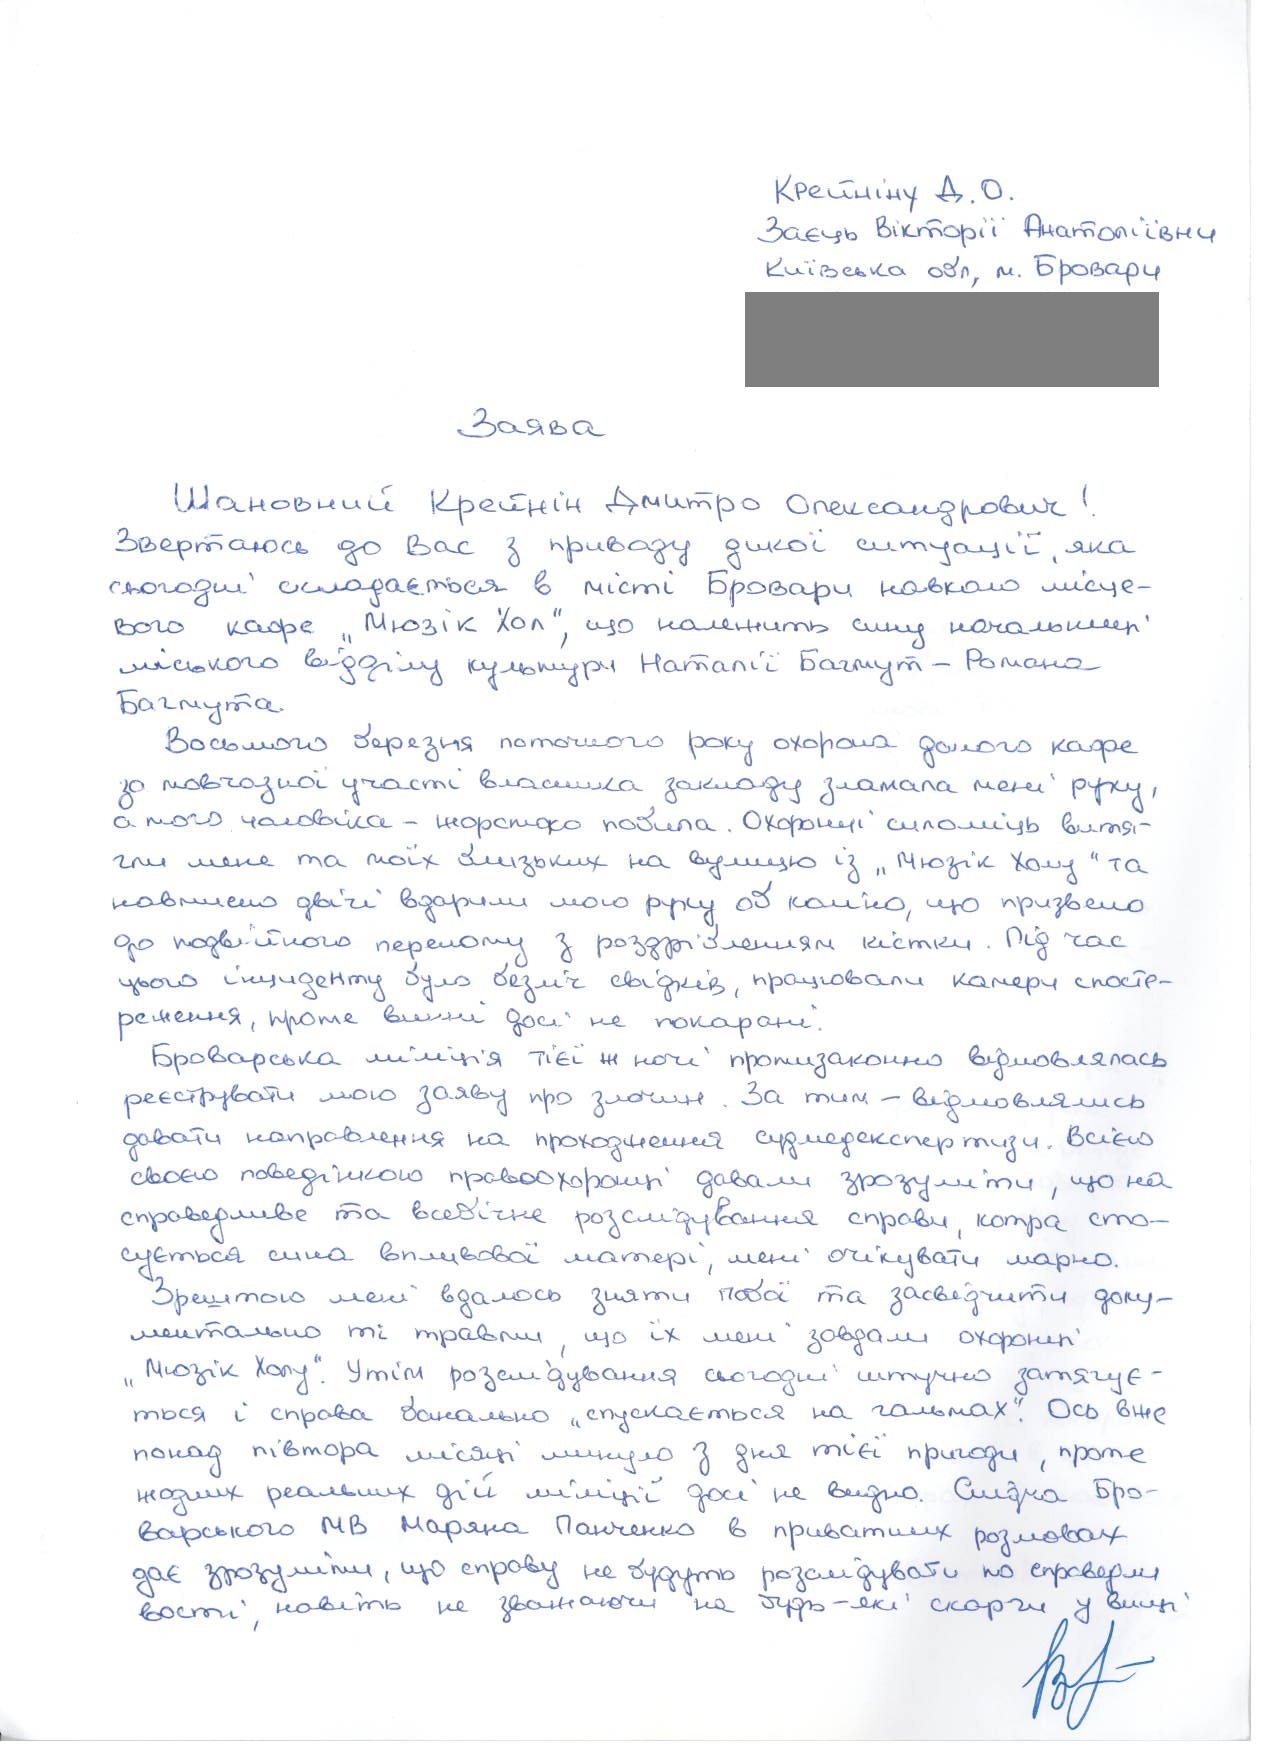 Крейніну Д.О.
Заєць Вікторії Анатоліївни
Київська обл, м. Бровари
Заява
Шановний Крейнін Дмитро Олександрович!
Звертаюсь до Вас з приводу дикої ситуації, яка
сьогодні складається в місті Бровари навколо місце-
вого кафе „Мюзік Хол", що належить сину начальниці
міського відділу культури Наталії Багмут – Романа
Багмута.
Восьмого березня поточного року охорона даного кафе
за мовчазної участі власника закладу зламала мені руку,
а мого чоловіка – жорстоко побила. Охоронці силоміць витя-
гли мене та моїх близьких на вулицю із „Мюзік Холу" та
навмисно двічі вдарили мою руку об коліно, що призвело
до подвійного перелому з роздрібленням кістки. Під час
цього інциденту було безліч свідків, працювали камери спосте-
реження, проте винні досі не покарані.
Броварська міліція тієї ж ночі протизаконно відмовлялась
реєструвати мою заяву про злочин. За тим – відмовлялись
давати направлення на проходження судмедекспертизи. Всією
своєю поведінкою правоохоронці давали зрозуміти, що на
справедливе та всебічне розслідування справи, котра сто-
сується сина впливової матері, мені очікувати марно.
Зрештою мені вдалось зняти побої та засвідчити доку-
ментально ті травми, що їх мені завдали охоронці
„Мюзік Холу". Утім розслідування сьогодні штучно затягує-
ться і справа банально „спускається на гальмах". Ось вже
понад півтора місяці минуло з дня тієї пригоди, проте
жодних реальних дій міліції досі не видно. Слідча Бро-
варського МВ Маряна Панченко в приватних розмовах
дає зрозуміти, що справу не будуть розслідувати по справедли
вості, навіть не зважаючи на будь-які скарги у вищі